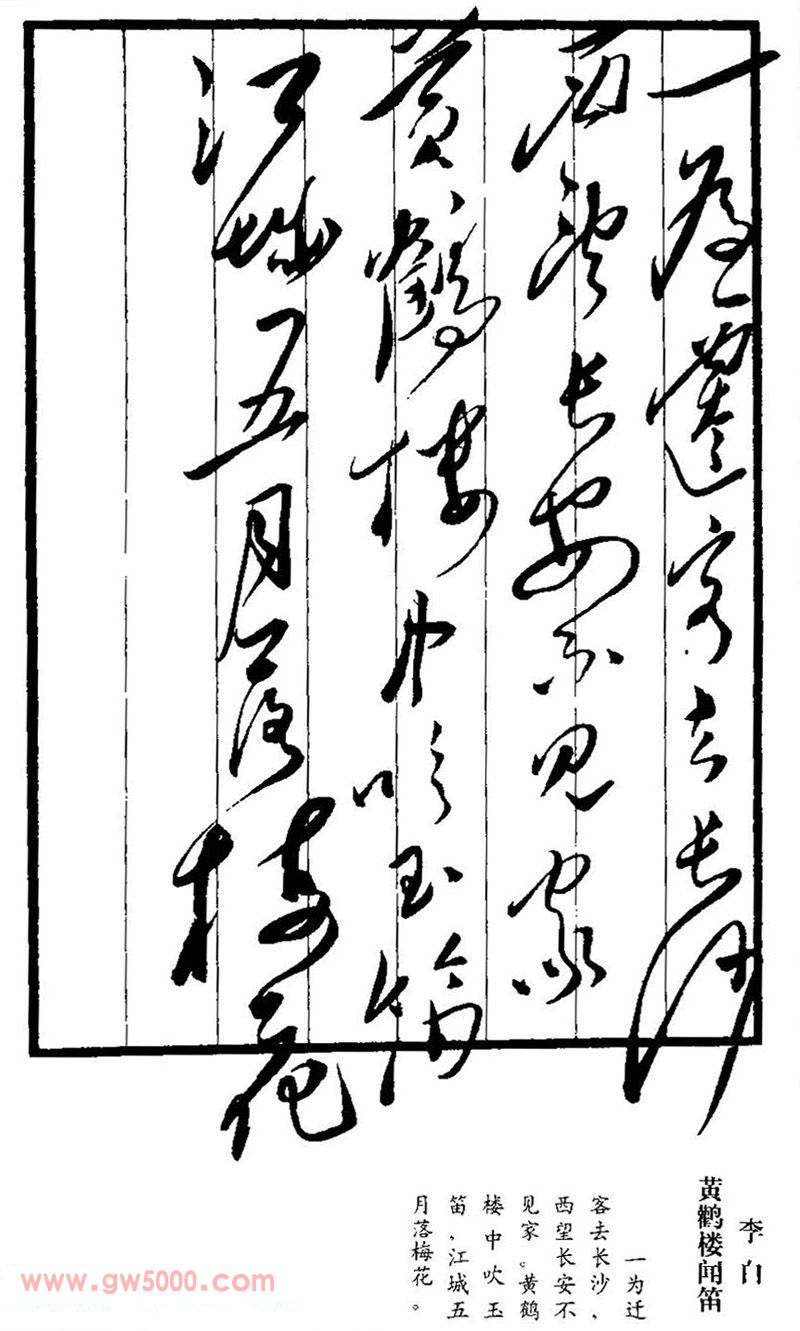 一为迁客去长沙
西望长安不见家
黄鹤楼中吹玉笛
江城五月落梅花
李白
黄鹤楼闻笛
一为迁
客去长沙，
西望长安不
见家。黄鹤
楼中吹玉
笛，江城五
月落梅花。
www.gw5000.com